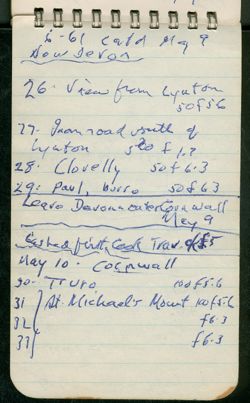 6-61 cont'd May 9
Now Devon
26. View from Lynton
50 f 5.6
27. From road south of
Lynton 50 f
28. Clovelly 50 f 6.3
29. Paul, burro 50 f 6.3
Leave Devon enter Cornwall
May 9
Cashed first Cook Trav. £5
May 10. Cornwall
30. Truro 100 f 5.6
31 St. Michael's Mount 100 f 5.6
32 f 6.3
33 f 6.3